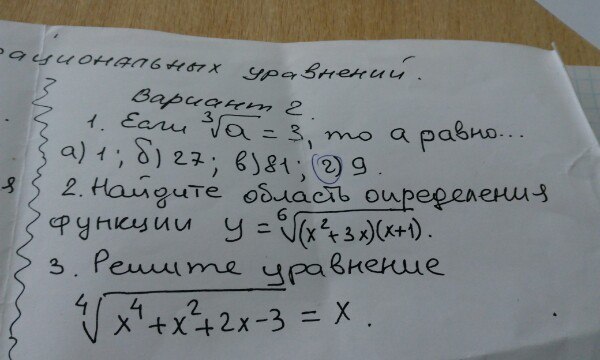 рациональных уравнений.
Вариант 2.
1. Если ∛a = 3, то а равно...
а) 1; б) 27; в) 81; г) 9.
2. Найдите область определения
функции y = ⁶√(x²+3x)(x+1).
3. Решите уравнение
⁴√x⁴+x²+2x-3 = x.